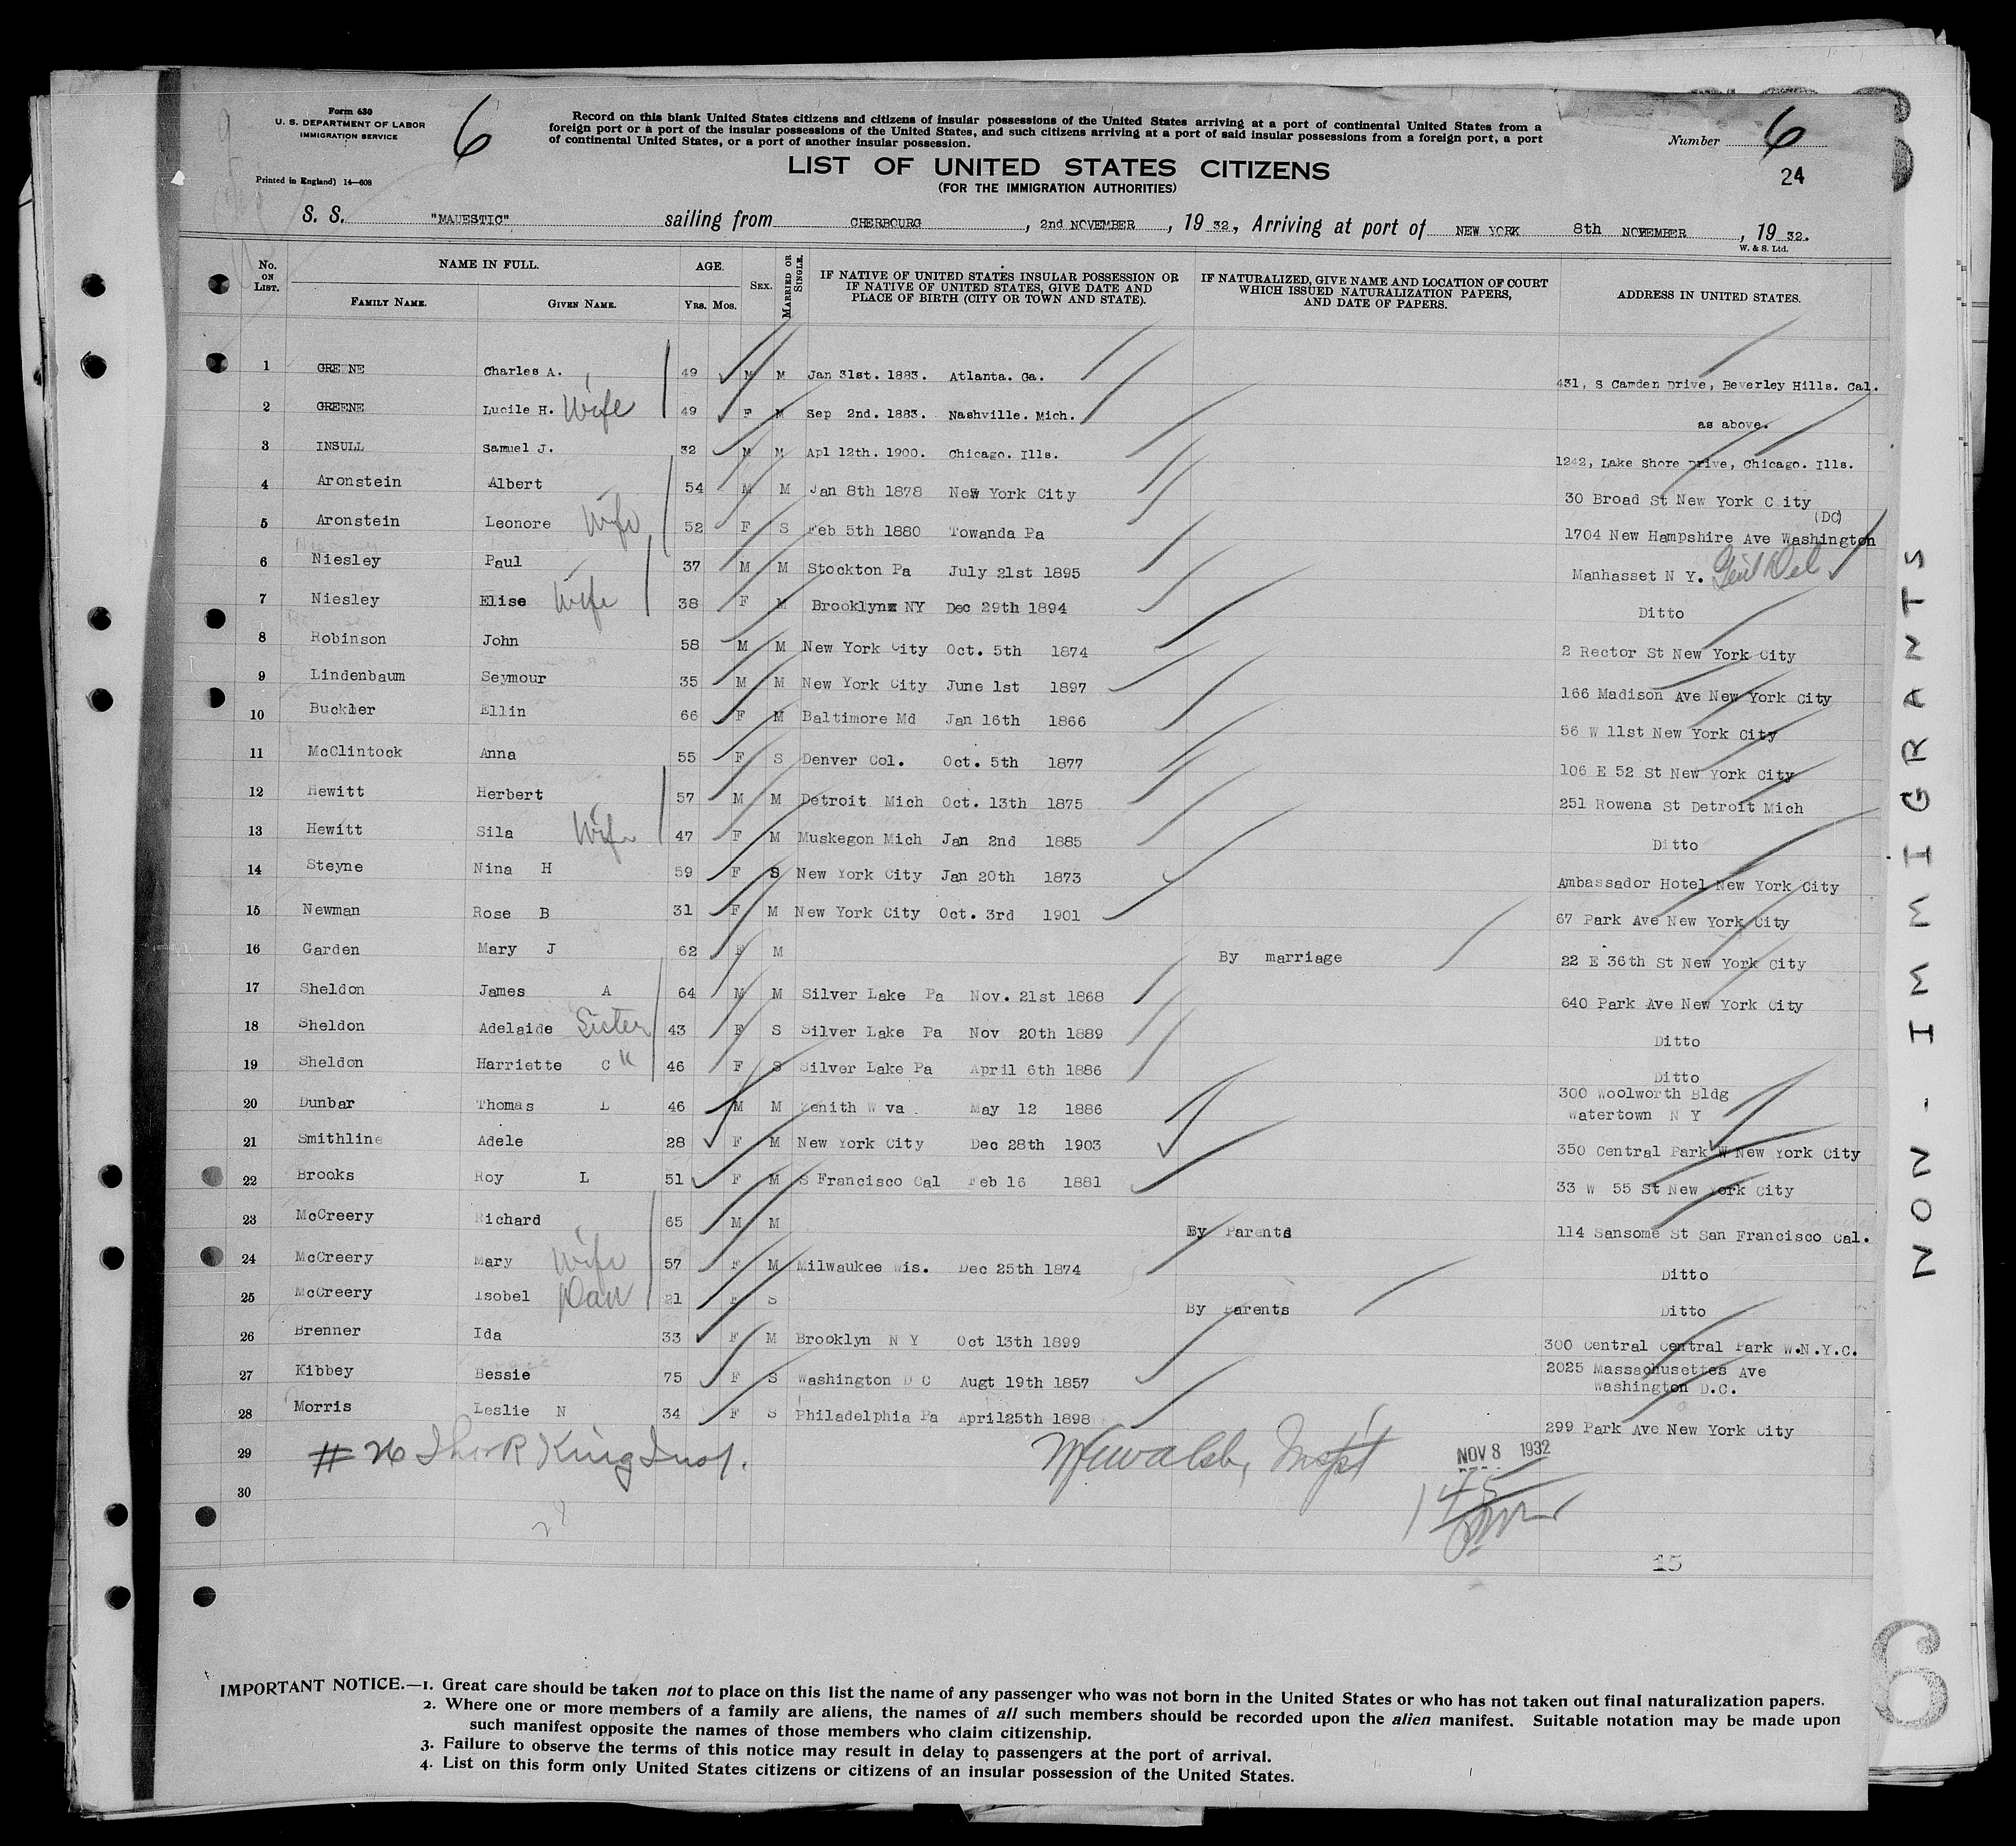 Form 630
U. S. DEPARTMENT OF LABOR
IMMIGRATION SERVICE
Printed in England) 14—608
6
Record on this blank United States citizens and citizens of insular possessions of the United States arriving at a port of continental United States from a
foreign port or a port of the insular possessions of the United States, and such citizens arriving at a port of said insular possessions from a foreign port, a port
of continental United States, or a port of another insular possession.
Number 6
24
LIST OF UNITED STATES CITIZENS
(FOR THE IMMIGRATION AUTHORITIES)
S. S. "MAUESTIC" sailing from CHERBOURG, 2nd NOVEMBER, 19 32, Arriving at port of NEW YORK 8th NOVEMBER, 19 32.
W. & S. Ltd.
No. ON LIST. NAME IN FULL. FAMILY NAME. GIVEN NAME. AGE. Yrs. Mos. SEX. MARRIED OR SINGLE. IF NATIVE OF UNITED STATES INSULAR POSSESSION OR IF NATIVE OF UNITED STATES, GIVE DATE AND PLACE OF BIRTH (CITY OR TOWN AND STATE). IF NATURALIZED, GIVE NAME AND LOCATION OF COURT WHICH ISSUED NATURALIZATION PAPERS, AND DATE OF PAPERS. ADDRESS IN UNITED STATES.
1 GREENE Charles A. 49 M M Jan 31st. 1883. Atlanta. Ga. 431, S Camden Drive, Beverley Hills. Cal.
2 GREENE Lucile H. Wife 49 F M Sep 2nd. 1883. Nashville. Mich. as above.
3 INSULL Samuel J. 32 M M Apl 12th. 1900. Chicago. Ills. 1242, Lake Shore Drive, Chicago. Ills.
4 Aronstein Albert 54 M M Jan 8th 1878 New York City 30 Broad St New York C ity
5 Aronstein Leonore Wife 52 F S Feb 5th 1880 Towanda Pa 1704 New Hampshire Ave Washington (DC)
6 Niesley Paul 37 M M Stockton Pa July 21st 1895 Manhasset N Y. Gen'l Del
7 Niesley Elise Wife 38 F M Brooklynx NY Dec 29th 1894 Ditto
8 Robinson John 58 M M New York City Oct. 5th 1874 2 Rector St New York City
9 Lindenbaum Seymour 35 M M New York City June 1st 1897 166 Madison Ave New York City
10 Buckler Ellin 66 F M Baltimore Md Jan 16th 1866 56 W 11st New York City
11 McClintock Anna 55 F S Denver Col. Oct. 5th 1877 106 E 52 St New York City
12 Hewitt Herbert 57 M M Detroit Mich Oct. 13th 1875 251 Rowena St Detroit Mich
13 Hewitt Sila Wife 47 F M Muskegon Mich Jan 2nd 1885 Ditto
14 Steyne Nina H 59 F S New York City Jan 20th 1873 Ambassador Hotel New York City
15 Newman Rose B 31 F M New York City Oct. 3rd 1901 67 Park Ave New York City
16 Garden Mary J 62 F M By marriage 22 E 36th St New York City
17 Sheldon James A 64 M M Silver Lake Pa Nov. 21st 1868 640 Park Ave New York City
18 Sheldon Adelaide Sister 43 F S Silver Lake Pa Nov 20th 1889 Ditto
19 Sheldon Harriette C " 46 F S Silver Lake Pa April 6th 1886 Ditto
20 Dunbar Thomas L 46 M M Zenith W va. May 12 1886 300 Woolworth Bldg
Watertown N Y
21 Smithline Adele 28 F M New York City Dec 28th 1903 350 Central Park W New York City
22 Brooks Roy L 51 F M S Francisco Cal Feb 16 1881 33 W 55 St New York City
23 McCreery Richard 65 M M By Parents 114 Sansome St San Francisco Cal.
24 McCreery Mary Wife 57 F M Milwaukee Wis. Dec 25th 1874 Ditto
25 McCreery Isobel Dau 21 F S By Parents Ditto
26 Brenner Ida 33 F M Brooklyn N Y Oct 13th 1899 300 Central Central Park W.N.Y.C.
27 Kibbey Bessie 75 F S Washington D C Augt 19th 1857 2025 Massachusettes Ave
Washington D.C.
28 Morris Leslie N 34 F S Philadelphia Pa April25th 1898 299 Park Ave New York City
29 # 26 King
NOV 8 1932
30
145
15
NON-IMMIGRANTS
6
IMPORTANT NOTICE.—1. Great care should be taken not to place on this list the name of any passenger who was not born in the United States or who has not taken out final naturalization papers.
2. Where one or more members of a family are aliens, the names of all such members should be recorded upon the alien manifest. Suitable notation may be made upon
such manifest opposite the names of those members who claim citizenship.
3. Failure to observe the terms of this notice may result in delay to passengers at the port of arrival.
4. List on this form only United States citizens or citizens of an insular possession of the United States.